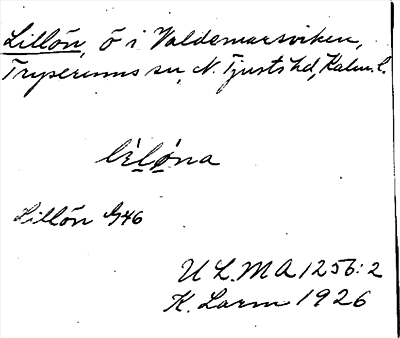 Lillön, ö i Valdemarsviken,
Tryserums sn, N. Tjusts hd, Kalm. l.
lìlø̀na
Lillön G46
ULMA 1256:2
K. Larm 1926